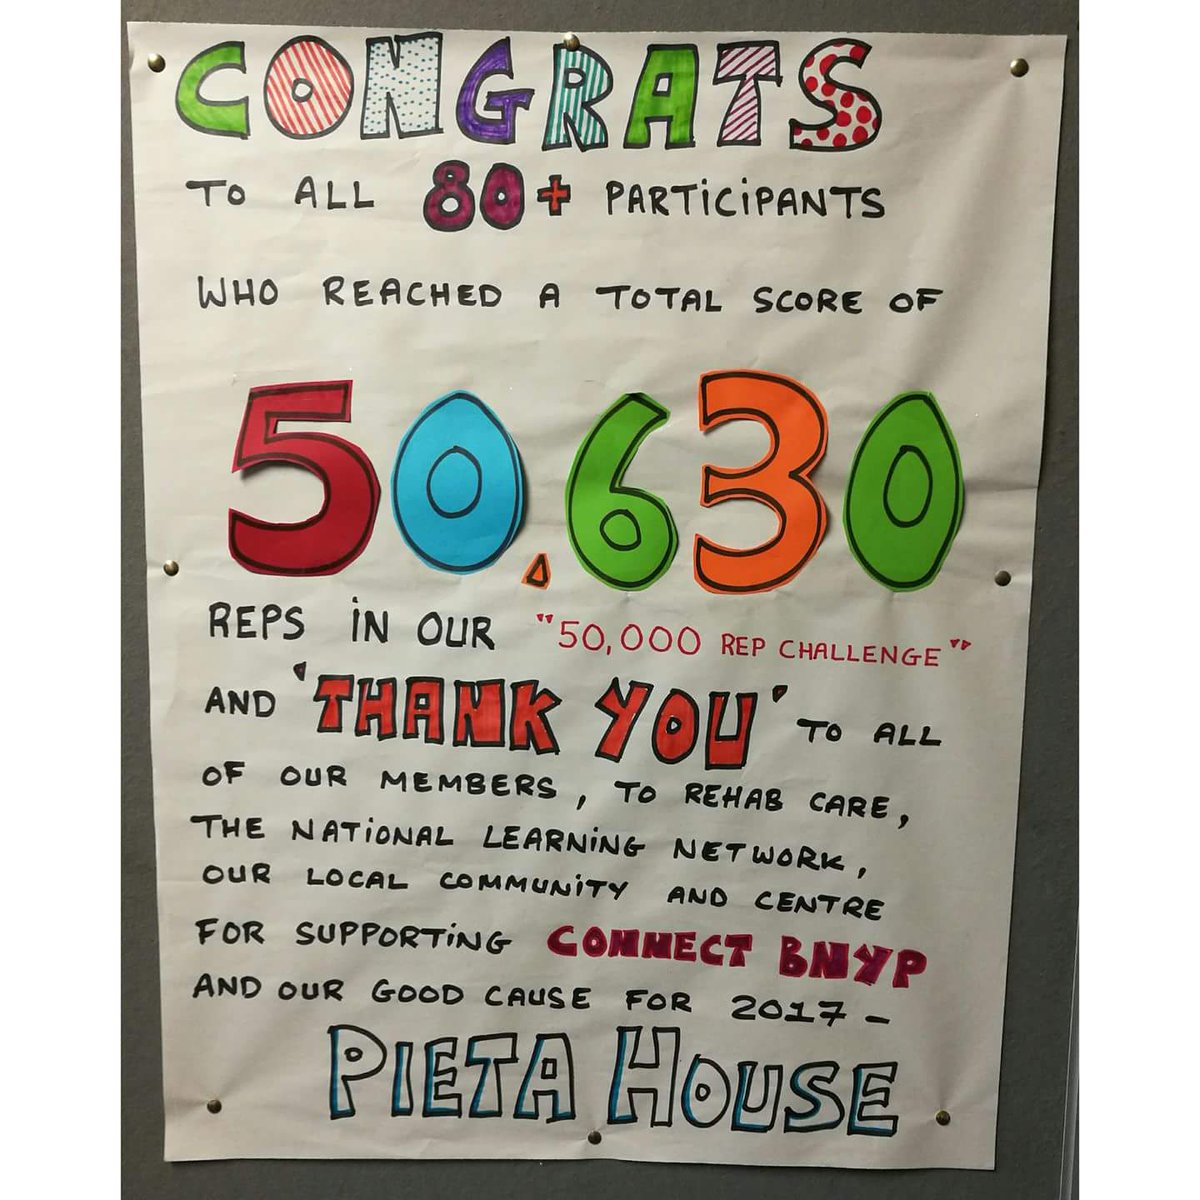 CONGRATS
TO ALL 80+ PARTiCiPANTS
WHO REACHED A TOTAL SCORE OF
50.630
REPS iN OUR "50,000 REP CHALLENGE"
AND 'THANK YOU' TO ALL
OF OUR MEMBERS, TO REHAB CARE,
THE NATiONAL LEARNiNG NETWORK,
OUR LOCAL COMMUNiTY AND CENTRE
FOR SUPPORTiNG CONNECT BNYP
AND OUR GOOD CAUSE FOR 2017 –
PIETA HOUSE